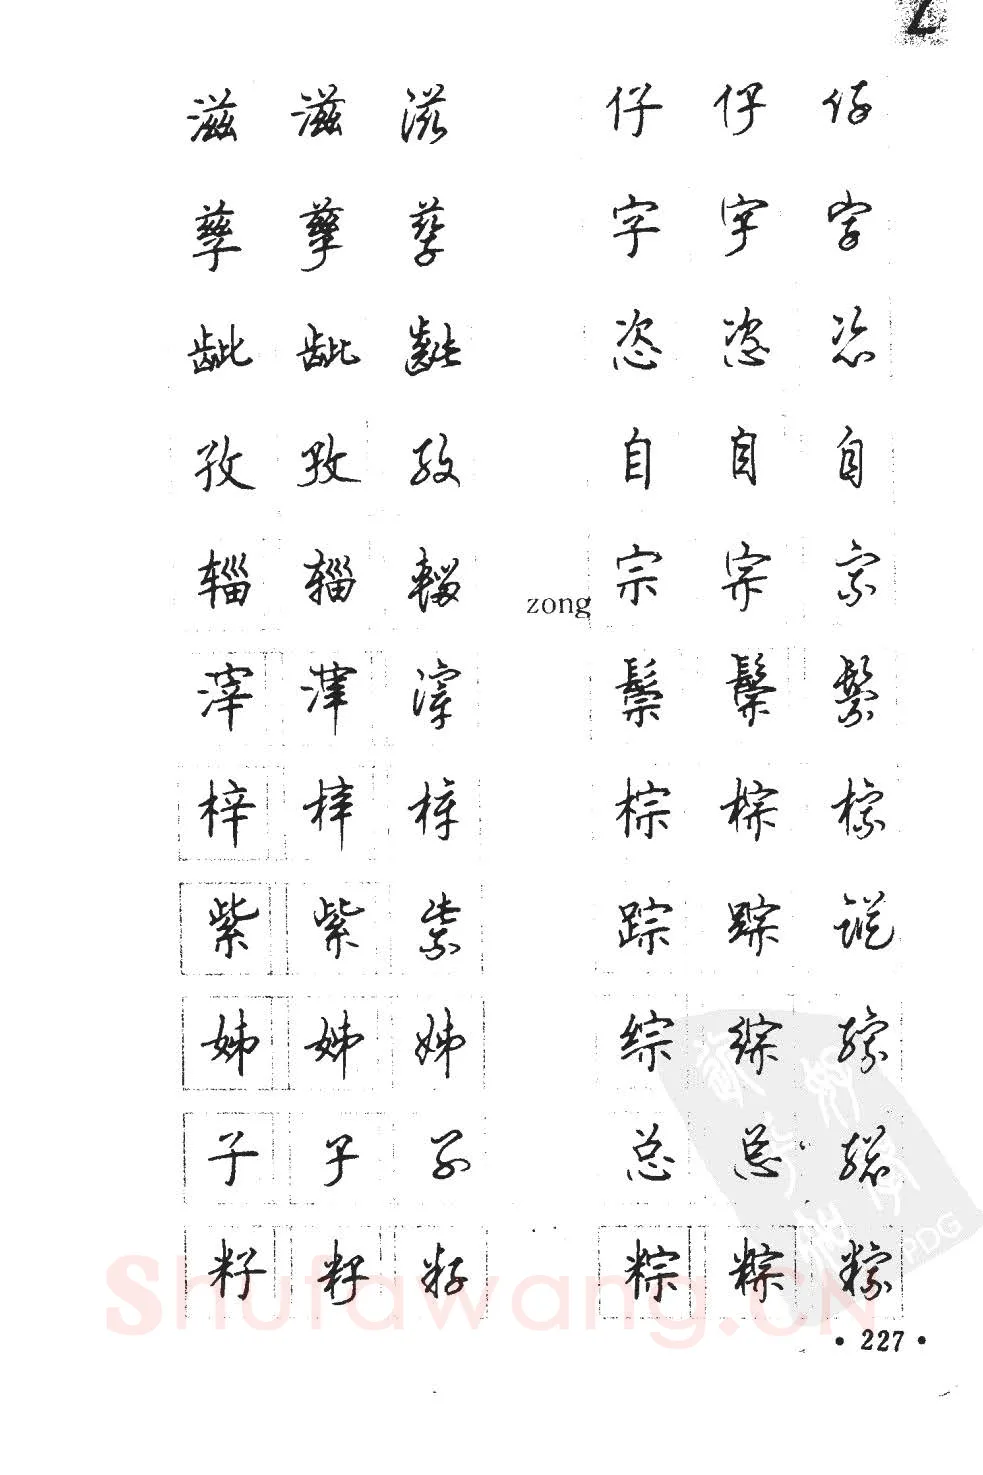 Z
滋 滋 滋 仔 仔 仔
孳 孳 孳 字 字 字
龇 龇 龇 恣 恣 恣
孜 孜 孜 自 自 自
辎 辎 輜 zong 宗 宗 宗
滓 滓 滓 鬃 鬃 鬃
梓 梓 梓 棕 棕 棕
紫 紫 紫 踪 踪 踪
姊 姊 姊 综 综 综
子 子 子 总 总 總
籽 籽 籽 粽 粽 粽
Shufawang.CN
PDG
• 227 •